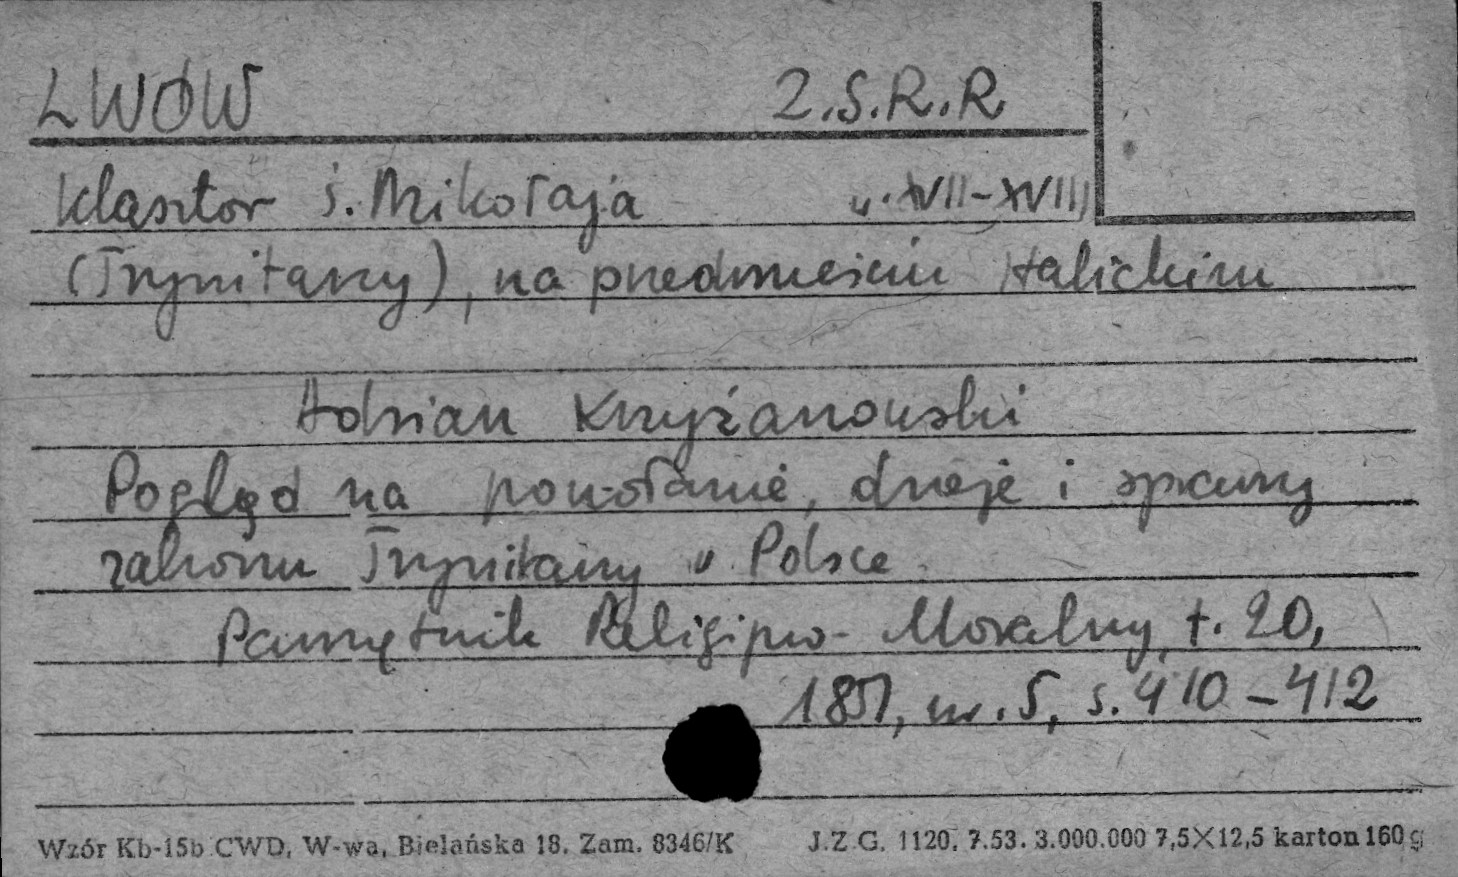 LWÓW Z.S.R.R
klasztor ś. Mikołaja w. XVII-XVIII
(Trynitarzy), na przedmieściu Halickim
Adrian Krzyżanowski
Pogląd na powołanie, dzieje i sprawy
zakonu Trynitarzy w Polsce.
Pamiętnik Religijno-Moralny, t. 20,
1851, nr. 5, s. 410-412
Wzór Kb-15b CWD, W-wa, Bielańska 18. Zam. 8346/K J.Z.G. 1120. 7.53. 3.000.000 7,5×12,5 karton 160 g